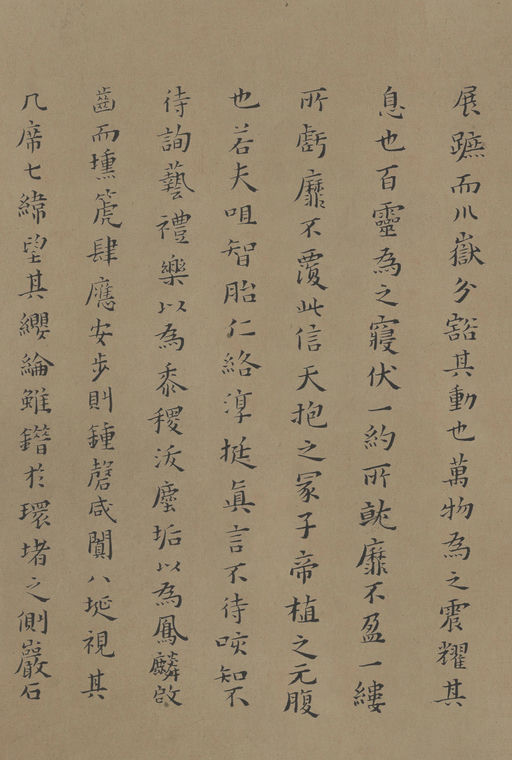 展蹠而川嶽分豁其動也萬物為之震耀其
息也百靈為之寢伏一約所就靡不盈一縷
所虧靡不覆此信天抱之冢子帝植之元腹
也若夫咀智胎仁絡淳挺真言不待咳知不
待詢藝禮樂以為黍稷泼塵垢以為鳳麟啟
齒而壎箎肆應安步則鍾磬咸闐八埏視其
几席七緯望其纓綸雖鐕於環堵之側巖石